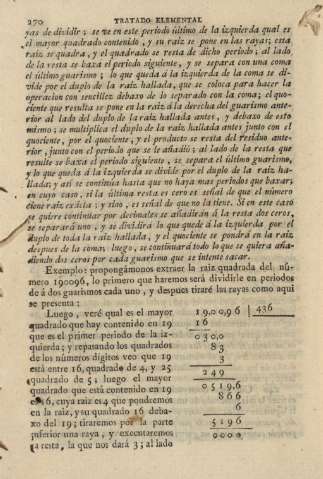 270 TRATADO ELEMENTAL
yas de dividir; se ve en este período último de la izquierda qual es
el mayor quadrado contenido, y su raiz se pone en las rayas; esta
raiz se quadra, y el quadrado se resta de dicho período; al lado
de la resta se baxa el período siguiente, y se separa con una coma
el último guarismo; lo que queda á la izquierda de la coma se di-
vide por el duplo de la raiz hallada, que se coloca para hacer la
operacion con sencillez debaxo de lo separado con la coma; el quo-
ciente que resulta se pone en la raiz á la derecha del guarismo ante-
rior al lado del duplo de la raiz hallada antes, y debaxo de esto
mismo; se multiplica el duplo de la raiz hallada antes junto con el
quociente, por el quociente, y el producto se resta del residuo ante-
rior, junto con el período que se le añadió; al lado de la resta que
resulte se baxa el período siguiente, se separa el último guarismo,
y lo que queda á la izquierda se divide por el duplo de la raiz ha-
llada; y así se continúa hasta que no haya mas períodos que baxar;
en cuyo caso, si la última resta es cero es señal de que el número
tiene raiz exâcta; y sino, es señal de que no la tiene. Si en este caso
se quiere continuar por decimales se añadirán á la resta dos ceros,
se separará uno, y se dividirá lo que quede á la izquierda por el
duplo de toda la raiz hallada, y el quociente se pondrá en la raiz
despues de la coma: luego, se continuará todo lo que se quiera aña-
diendo dos ceros por cada guarismo que se intente sacar.
Exemplo: propongámonos extraer la raiz quadrada del nú-
mero 190096, lo primero que haremos será dividirle en períodos
de á dos guarismos cada uno, y despues tiraré las rayas como aqui
se presenta:
Luego, veré qual es el mayor
quadrado que hay contenido en 19
que es el primer período de la iz-
quierda; y repasando los quadrados
de los números dígitos veo que 19
está entre 16, quadrado de 4, y 25
quadrado de 5; luego el mayor
quadrado que está contenido en 19
es 16, cuya raiz es 4 que pondremos
en la raiz, y su quadrado 16 deba-
xo del 19; tiraremos por la parte
inferior una raya, y executaremos
la resta, la que nos dará 3; al lado
19,00,96 | 436
16
030,0
83
3
249
0519,6
866
6
5196
0000